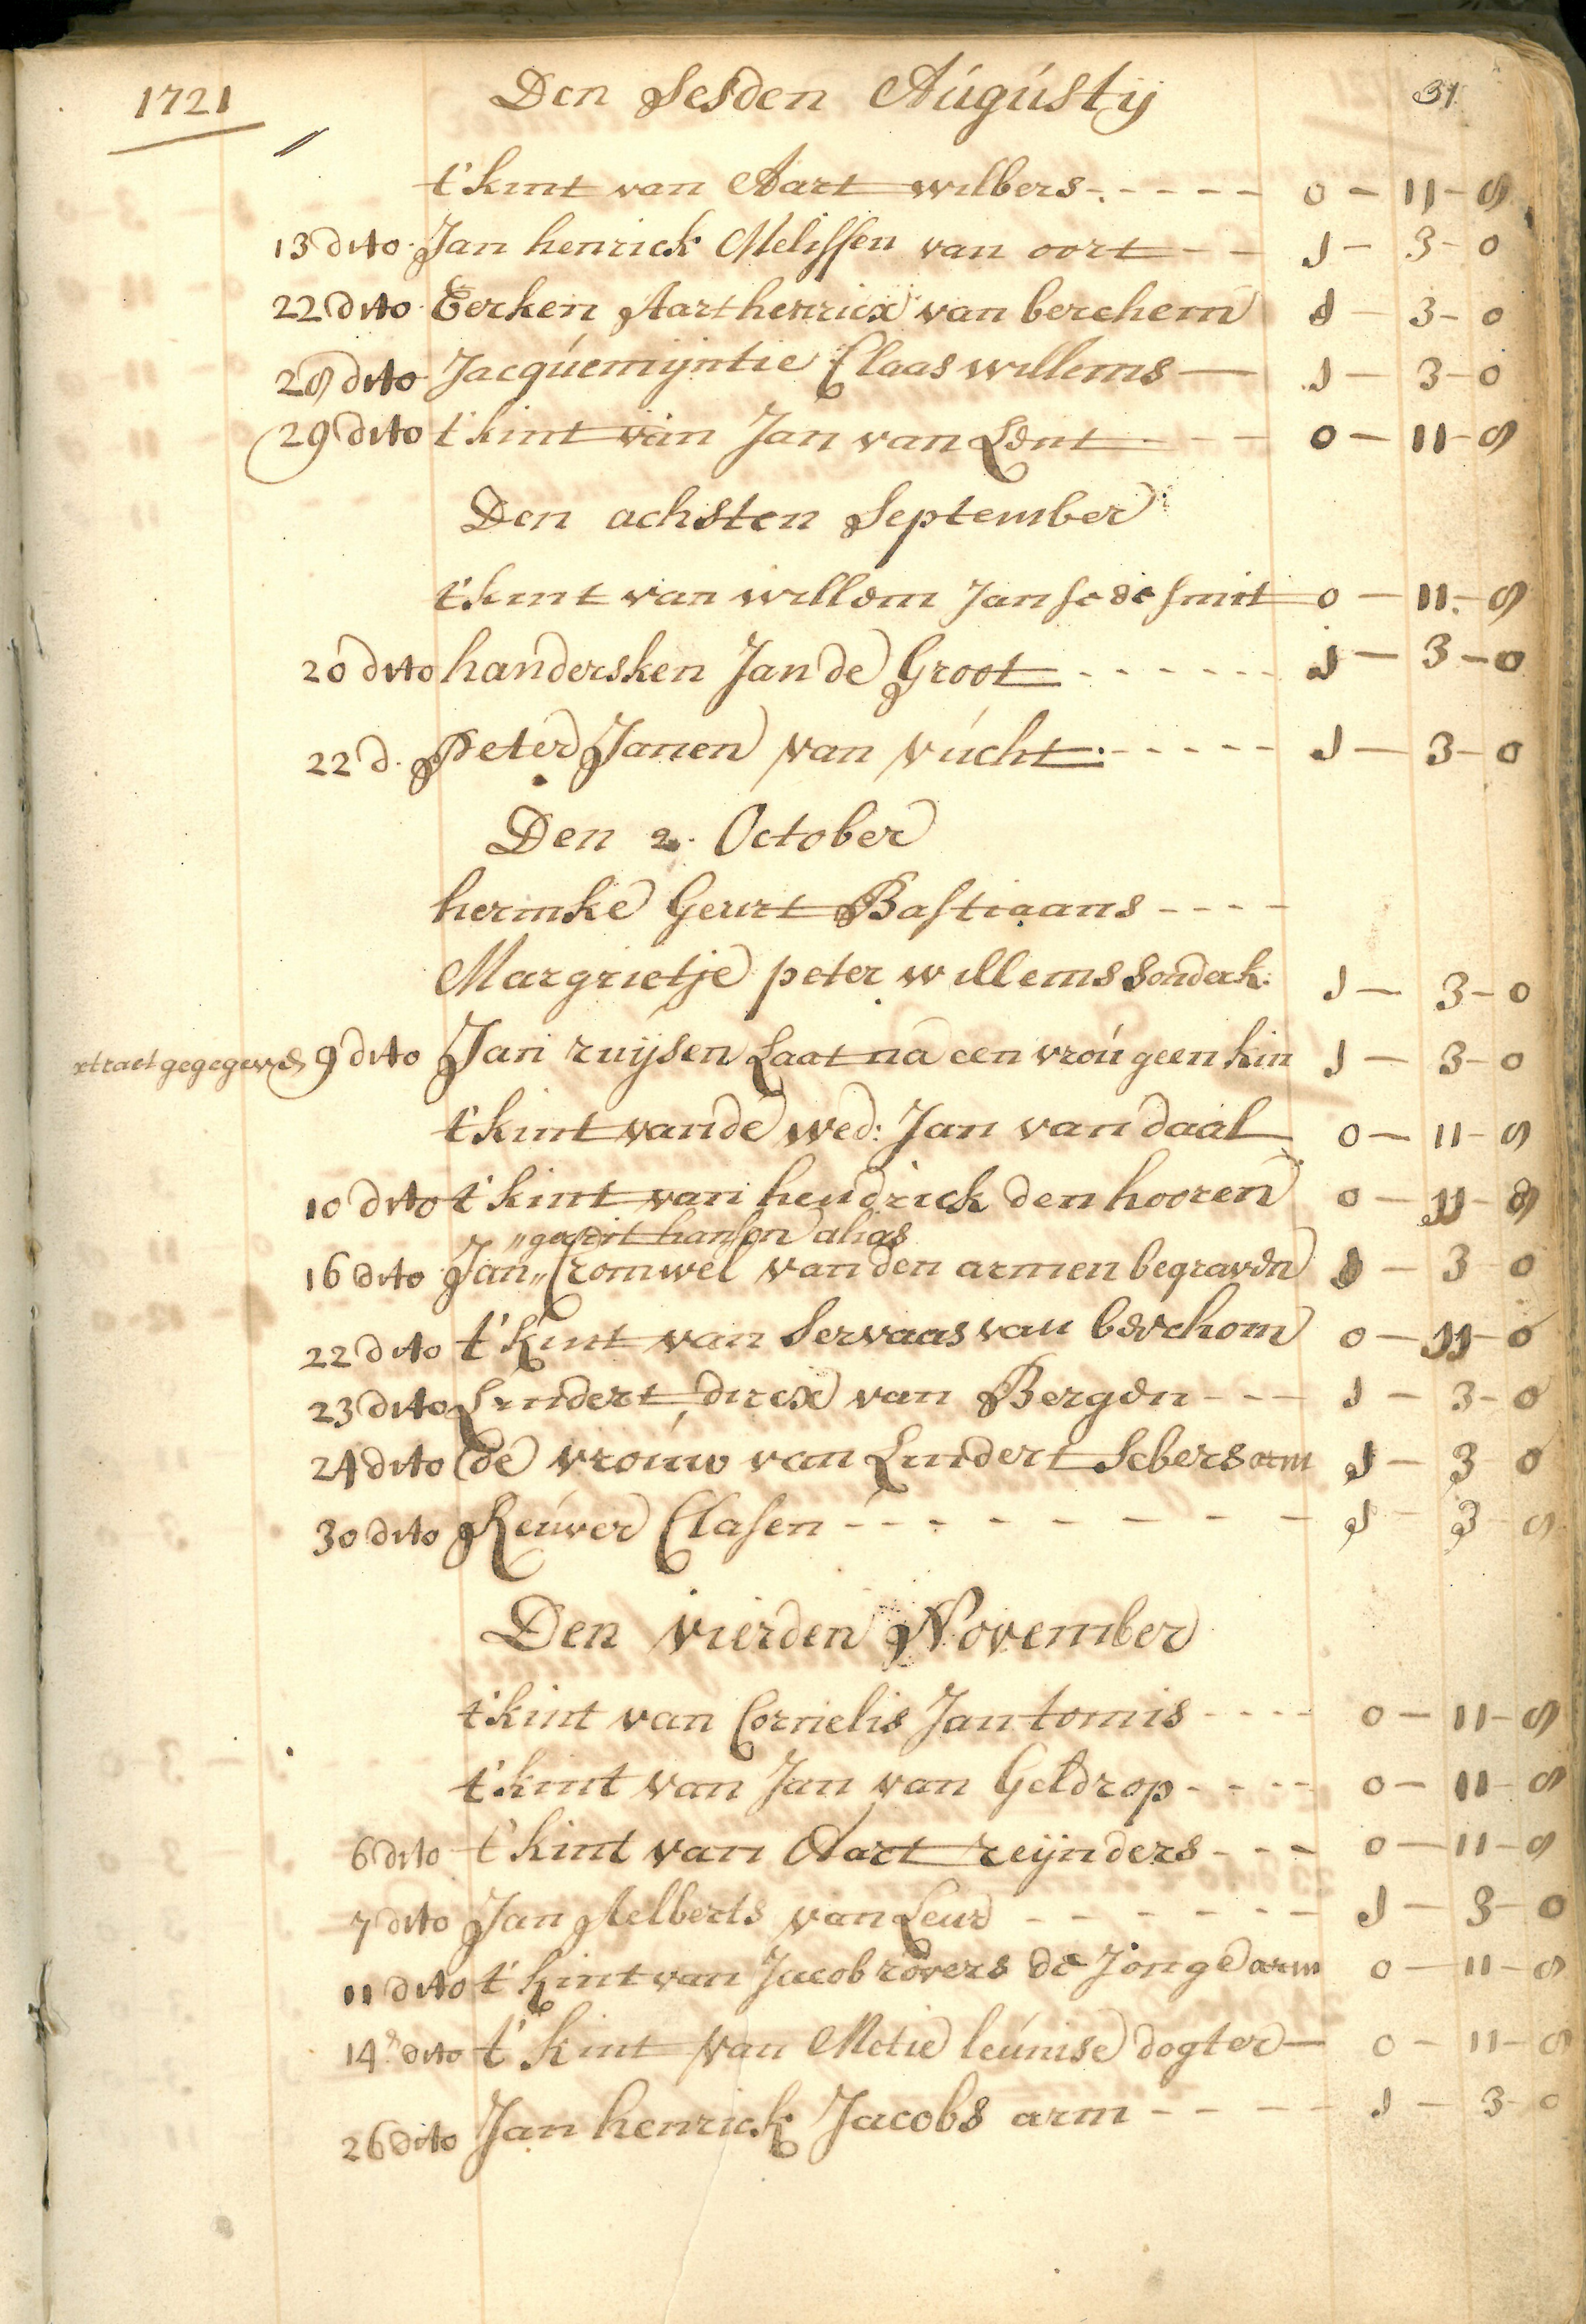 1721 Den Sesden Augústij 31
t'kint van Aart wilbers - - - - - 0 - 11 - 8
13 dito Jan henrick Melissen van oort - - 1 - 3 - 0
22 dito Eerken Aart henricx van berchem 1 - 3 - 0
28 dito Jacqúemijntie Claas willems - 1 - 3 - 0
29 dito t'kint van Jan van Lent - - - 0 - 11 - 8
Den achsten September
t'kint van willem Janse de smit 0 - 11 - 8
20 dito handersken Jan de Groot - - - - - - 1 - 3 - 0
22 d. Peter Janen van vúcht - - - - - 1 - 3 - 0
Den 2. October
hermke Geurt Bastiaans - - - -
Margrietje peter willems Sonderk: 1 - 3 - 0
xtract gegegeven 9 dito Jan ruijsen Laat na een vroú geen kin 1 - 3 - 0
t'kint van de wed: Jan van daal 0 - 11 - 8
10 dito t'kint van hendrick den hooren 0 - 11 - 8
"gerrit hansen alias
16 dito Jan" Cromwel van den armen begraven 1 - 3 0
22 dito t'kint van Servaas van berchom 0 - 11 - 0
23 dito Lindert dircx van Bergen - - - 1 - 3 - 0
24 dito de vroúw van Lindert Sebers arm 1 - 3 0
30 dito Reúver Clasen - - - - - - - - - 1 - 3 - 8
Den vierden November
t'kint van Cornelis Jan tomis - - - - 0 - 11 - 8
t'kint van Jan van Geldrop - - - - 0 - 11 - 8
6 dito t'kint van Aart reijnders - - - 0 - 11 - 8
7 dito Jan Aelberts van Leur - - - - - - 1 - 3 - 0
11 dito t'kint van Jacob rovers de Jonge arm 0 - 11 - 8
14 dito t'kint van Metie leúnise dogter - 0 - 11 - 8
26 dito Jan henrick Jacobs arm - - - - 1 - 3 - 0